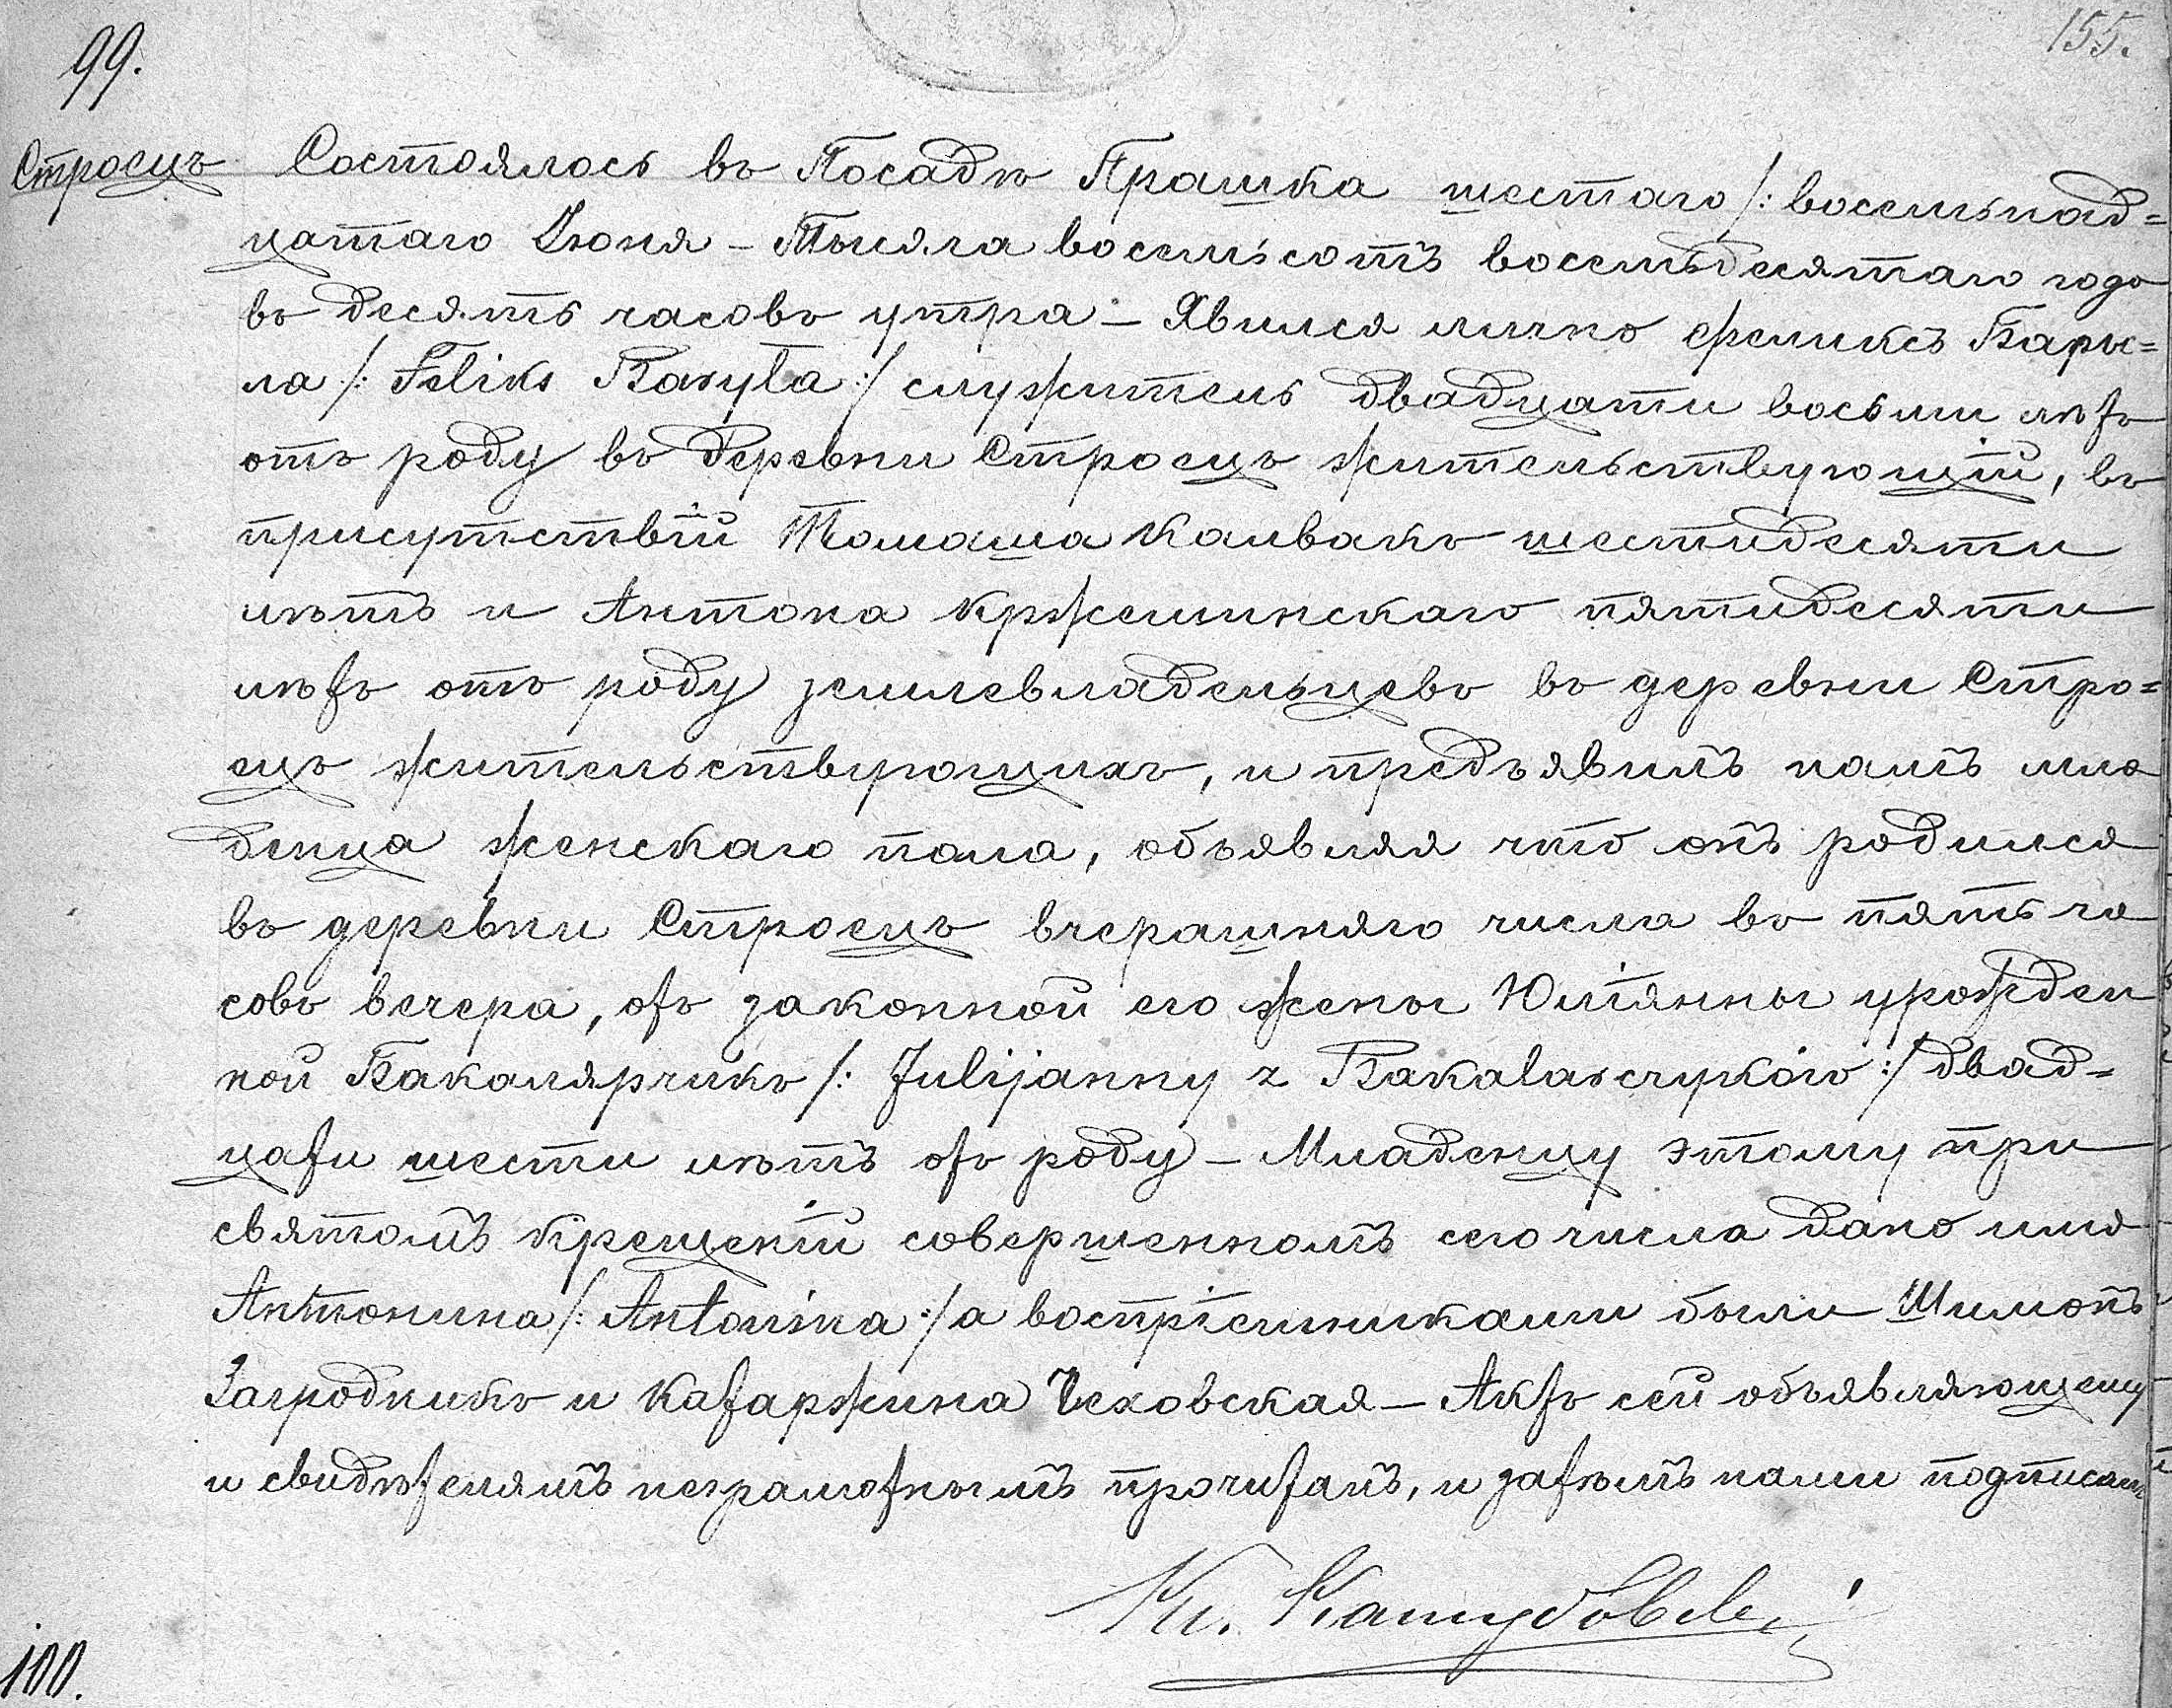 155.
99.
Строецъ
Состоялось въ Посадѣ Прашка шестаго /: восемьнад=
цатаго Іюня – Тысяча восемьсотъ восемьдесятаго года
въ десять часовъ утра – Явился лично Феликсъ Бары=
ла /: Feliks Baryła :/ служитель двадцати восьми лѣтъ
отъ роду въ деревни Строецъ жительствующій, въ
присутствіи Томаша Каивакъ шестидесяти
лѣтъ и Антона Кржеминскаго пятидесяти
лѣтъ отъ роду землевладельцевъ въ деревни Стро=
ецъ жительствующихъ, и предъявилъ намъ мла
денца женскаго пола, объявляя что онъ родился
въ деревни Строецъ вчерашняго числа въ пять ча
совъ вечера, отъ законной его жены Юліянны урожден
ной Бакалярчикъ /: Julijanny z Bakalarczyków :/ двад=
цати шести лѣтъ отъ роду – Младенцу этому при
святомъ крещеніи совершенномъ сего числа дано имя
Антонина /: Antonina :/ а воспріемниками были Шимонъ
Загродникъ и Катаржина Чеховская – Актъ сей объявляющему
и свидѣтелямъ неграмотнымъ прочитанъ, и затѣмъ нами подписанъ
Кс.
100.